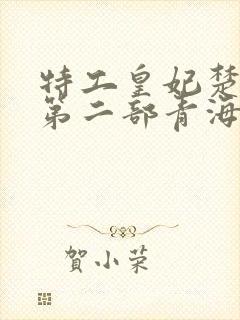 特工皇妃楚
第二部青海
賀小荣